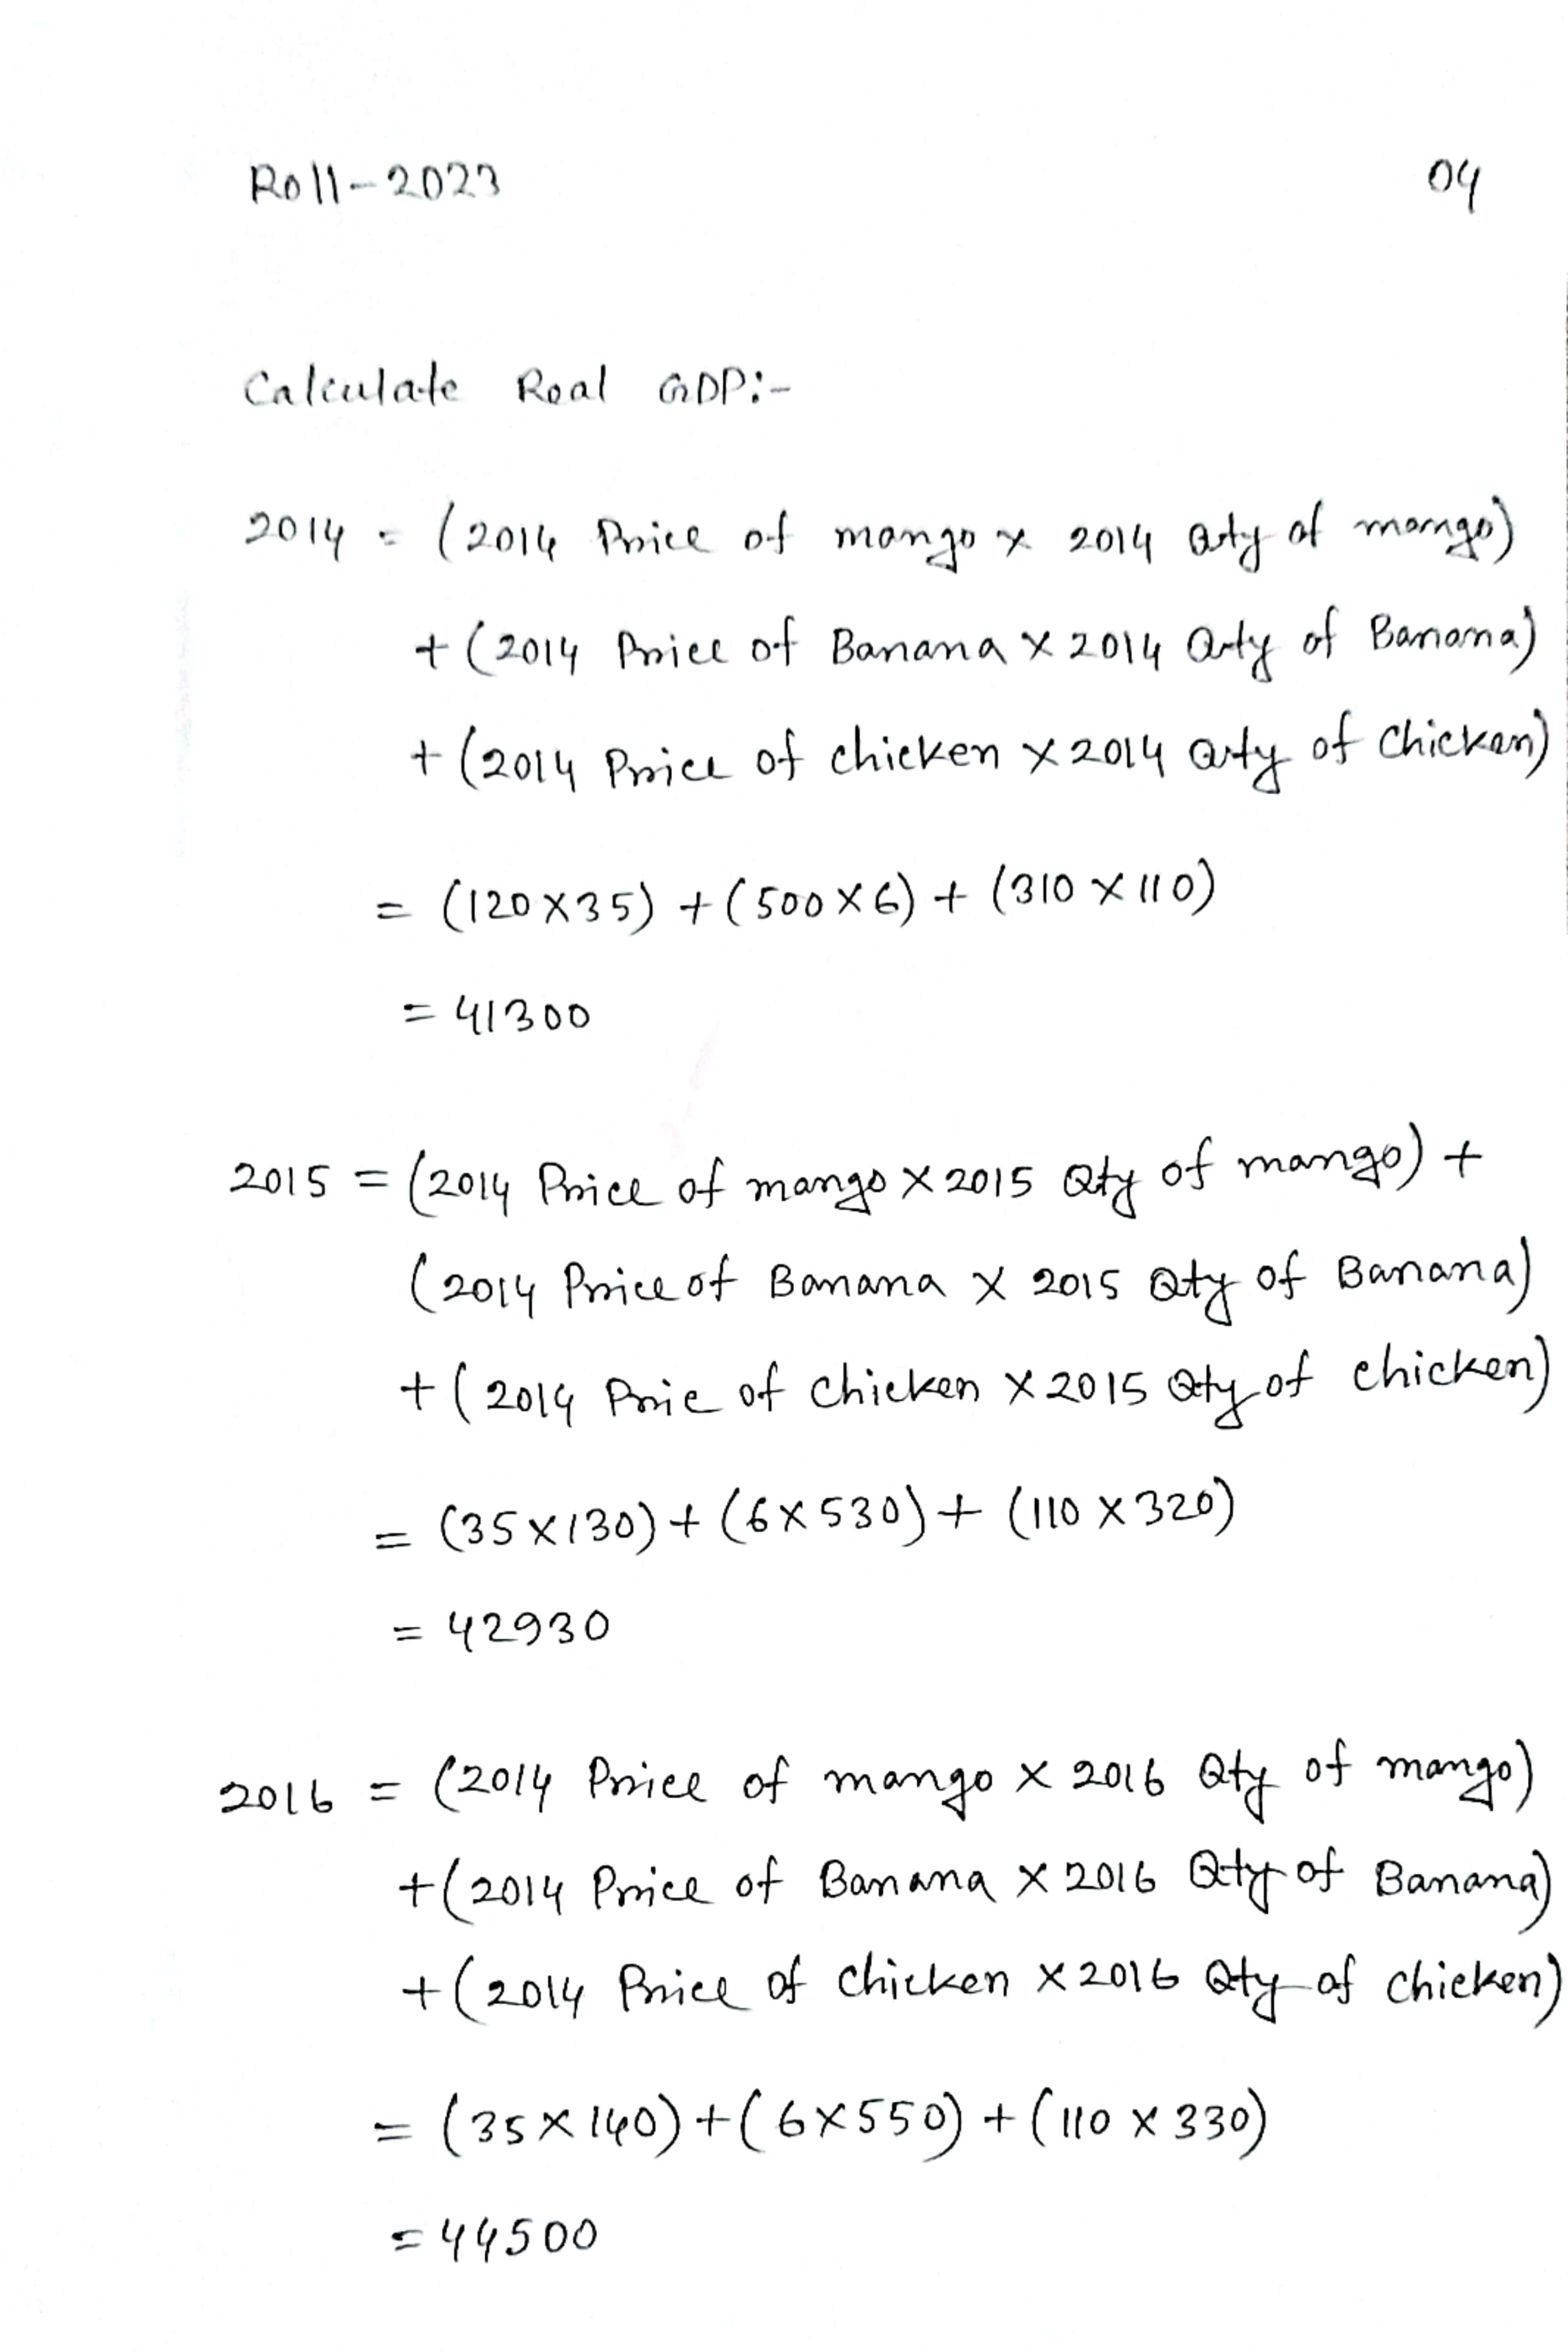 Roll-2023
04
Calculate Real GDP:-
2014 = (2014 Price of mango x 2014 Qty of mango)
+ (2014 Price of Banana X 2014 Qty of Banana)
+ (2014 Price of chicken X 2014 Qty of Chicken)
= (120 X 35) + (500 X 6) + (310 X 110)
= 41300
2015 = (2014 Price of mango X 2015 Qty of mango) +
(2014 Price of Banana X 2015 Qty of Banana)
+ (2014 Prie of Chicken X 2015 Qty of chicken)
= (35 X 130) + (6 X 530) + (110 X 320)
= 42930
2016 = (2014 Price of mango X 2016 Qty of mango)
+ (2014 Price of Banana X 2016 Qty of Banana)
+ (2014 Price of Chicken X 2016 Qty of Chicken)
= (35 X 140) + (6 X 550) + (110 X 330)
= 44500